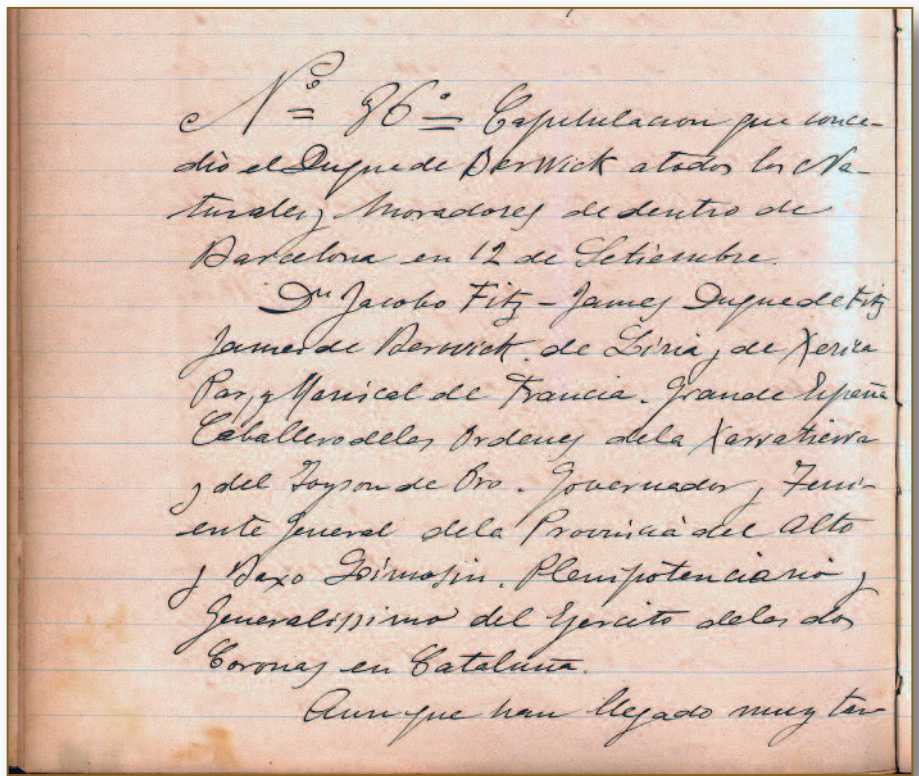 Nº 86º Capitulacion que conce-
dio el Duque de Berwick a todos los Na-
turales y Moradores de dentro de
Barcelona en 12 de Setiembre.
Dn Jacobo Fitz-James Duque de Fitz
James de Berwick, de Liria y de Xerica
Par, y Mariscal de Francia. Grande España
Caballero delas Ordenes dela Xarratierra
y del Toyson de Oro. Governador y Teni-
ente General dela Provincia del Alto
y Baxo Limosin. Plenipotenciario y
Generalissimo del Ejercito delas dos
Coronas en Cataluña.
Aunque han llegado muy tar